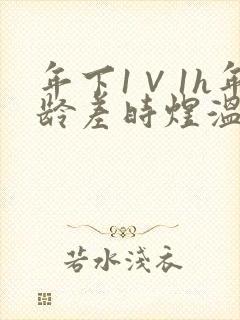 年下1V1h年
龄差時煌温
若水浅衣